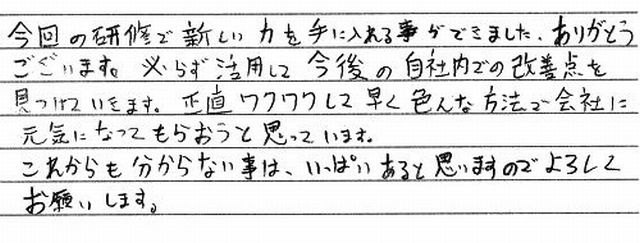 今回の研修で新しい力を手に入れる事ができました、ありがとう
ございます。必らず活用して今後の自社内での改善点を
見つけていきます。正直ワクワクして早く色んな方法で会社に
元気になってもらおうと思っています。
これからも分からない事は、いっぱいあると思いますのでよろしく
お願いします。